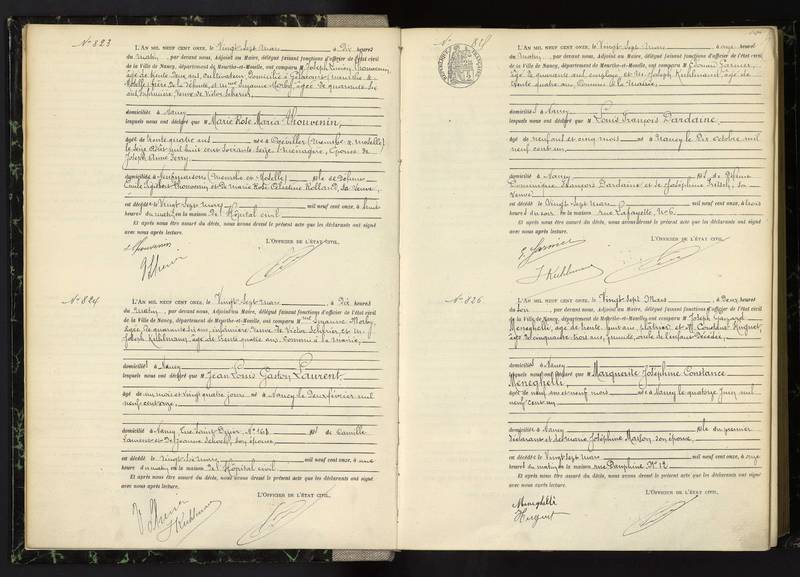 N° 823
L'AN MIL NEUF CENT ONZE, le Vingt Sept Mars, à Dix heures
du matin, par devant nous, Adjoint au Maire, délégué faisant fonctions d'officier de l'état civil
de la Ville de Nancy, département de Meurthe-et-Moselle, ont comparu M Joseph Thouvenin,
âgé de trente ans, cultivateur domicilié à Gélacourt Meurthe &
Moselle frère de la défunte, et Mme Suzanne Morby, âgée de quarante six
ans, infirmière, veuve de Victor
domiciliés à Nancy
lesquels nous ont déclaré que M Marie Rose Maria Thouvenin,
âgée de trente quatre ans, née à Ogéviller (Meurthe & Moselle)
le seize Août mil huit cent soixante seize, ménagère, épouse de
Joseph Ferry
domiciliée à (Meurthe et Moselle) fille de défunt
Emile Thouvenin et de Marie Rose Célestine sa veuve,
est décédée le Vingt Sept mars mil neuf cent onze, à huit
heures du matin, en la maison De l'Hôpital civil
Et après nous être assuré du décès, nous avons dressé le présent acte que les déclarants ont signé
avec nous après lecture.
L'OFFICIER DE L'ÉTAT-CIVIL,
Thouvenin
N° 824
L'AN MIL NEUF CENT ONZE, le Vingt Sept mars, à Dix heures
du matin, par devant nous, Adjoint au Maire, délégué faisant fonctions d'officier de l'état civil
de la Ville de Nancy, département de Meurthe-et-Moselle, ont comparu Mme Suzanne Morby,
âgée de quarante six ans, infirmière, veuve de Victor et M.
Joseph Kuhlmann, âgé de trente quatre ans, commis à la mairie,
domiciliés à Nancy
lesquels nous ont déclaré que M Jean Louis Gaston Laurent,
âgé de un mois et vingt quatre jours né à Nancy le Deux février mil
neuf cent onze,
domicilié à Nancy, rue N° 168 fils de Camille
Laurent et de Jeanne son épouse,
est décédé le vingt six mars mil neuf cent onze, à une
heure du matin, en la maison De l'Hôpital civil
Et après nous être assuré du décès, nous avons dressé le présent acte que les déclarants ont signé
avec nous après lecture.
L'OFFICIER DE L'ÉTAT CIVIL,
J Kuhlmann
N° 825
L'AN MIL NEUF CENT ONZE, le Vingt Sept mars, à onze heures
du matin, par devant nous, Adjoint au Maire, délégué faisant fonctions d'officier de l'état civil
de la Ville de Nancy, département de Meurthe-et-Moselle, ont comparu M Edouard Garnier,
âgé de quarante ans, employé et M. Joseph Kuhlmann, âgé de
trente quatre ans, Commis à la Mairie,
domiciliés à Nancy
lesquels nous ont déclaré que M Louis François Dardaine,
âgé de neuf ans et cinq mois né à Nancy le Dix octobre mil
neuf cent un,
domicilié à Nancy fils de Défunt
Dominique François Dardaine et de Joséphine sa
veuve
est décédé le Vingt Sept mars mil neuf cent onze, à trois
heures du matin, en la maison rue Lafayette, N° 6.
Et après nous être assuré du décès, nous avons dressé le présent acte que les déclarants ont signé
avec nous après lecture.
L'OFFICIER DE L'ÉTAT-CIVIL,
E Garnier
J Kuhlmann
N° 826.
L'AN MIL NEUF CENT ONZE, le Vingt Sept Mars, à Deux heures
du soir, par devant nous, Adjoint au Maire, délégué faisant fonctions d'officier de l'état civil
de la Ville de Nancy, département de Meurthe-et-Moselle, ont comparu M Joseph
Meneghelli, âgé de trente ans, plâtrier et M. Constant Huguet,
âgé de cinquante trois ans, oncle de l'enfant décédée,
domiciliés à Nancy
lesquels nous ont déclaré que M Marguerite Joséphine Constance
Meneghelli,
âgée de neuf ans et neuf mois née à Nancy le quatorze Juin mil
neuf cent un,
domiciliée à Nancy fille du premier
déclarant et de Marie Joséphine Marton, son épouse,
est décédée le Vingt Sept mars mil neuf cent onze, à onze
heures du matin, en la maison rue Dauphine N° 12
Et après nous être assuré du décès, nous avons dressé le présent acte que les déclarants ont signé
avec nous après lecture.
L'OFFICIER DE L'ÉTAT CIVIL,
Meneghelli
Huguet